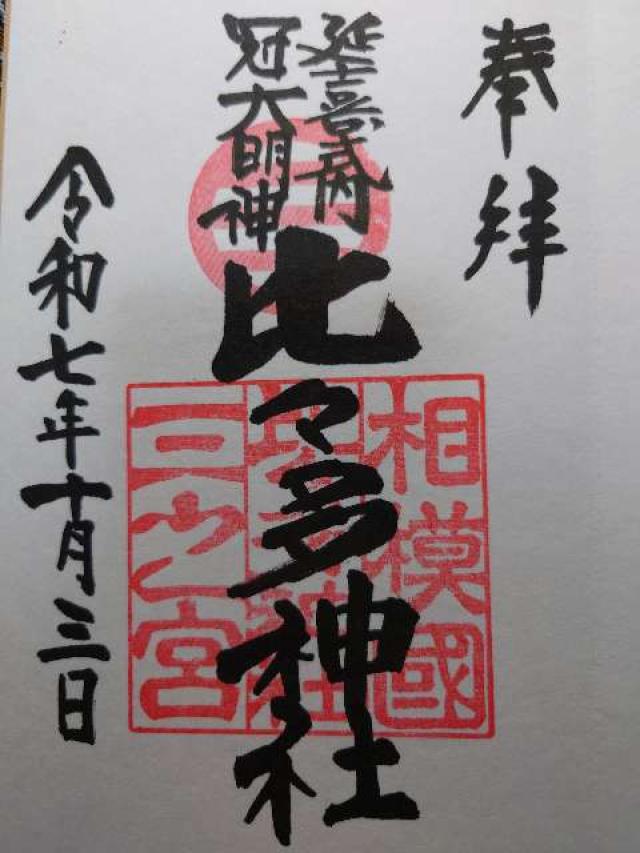 奉拝
延喜式内
冠大明神
比々多神社
令和七年十月三日
三
相模國
比々多神社
三之宮